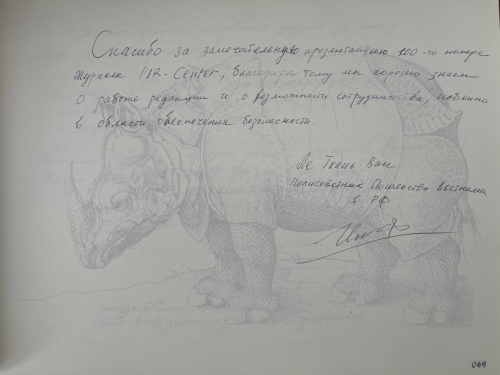 Спасибо за замечательную презентацию 100-го номера
журнала PIR-Center, благодаря тому мы хорошо знаем
о работе редакции и о возможности сотрудничества, особенно
в области обеспечения безопасности.
Ле Тхань Ван
Полисоветник Посольство Вьетнама
в РФ
064